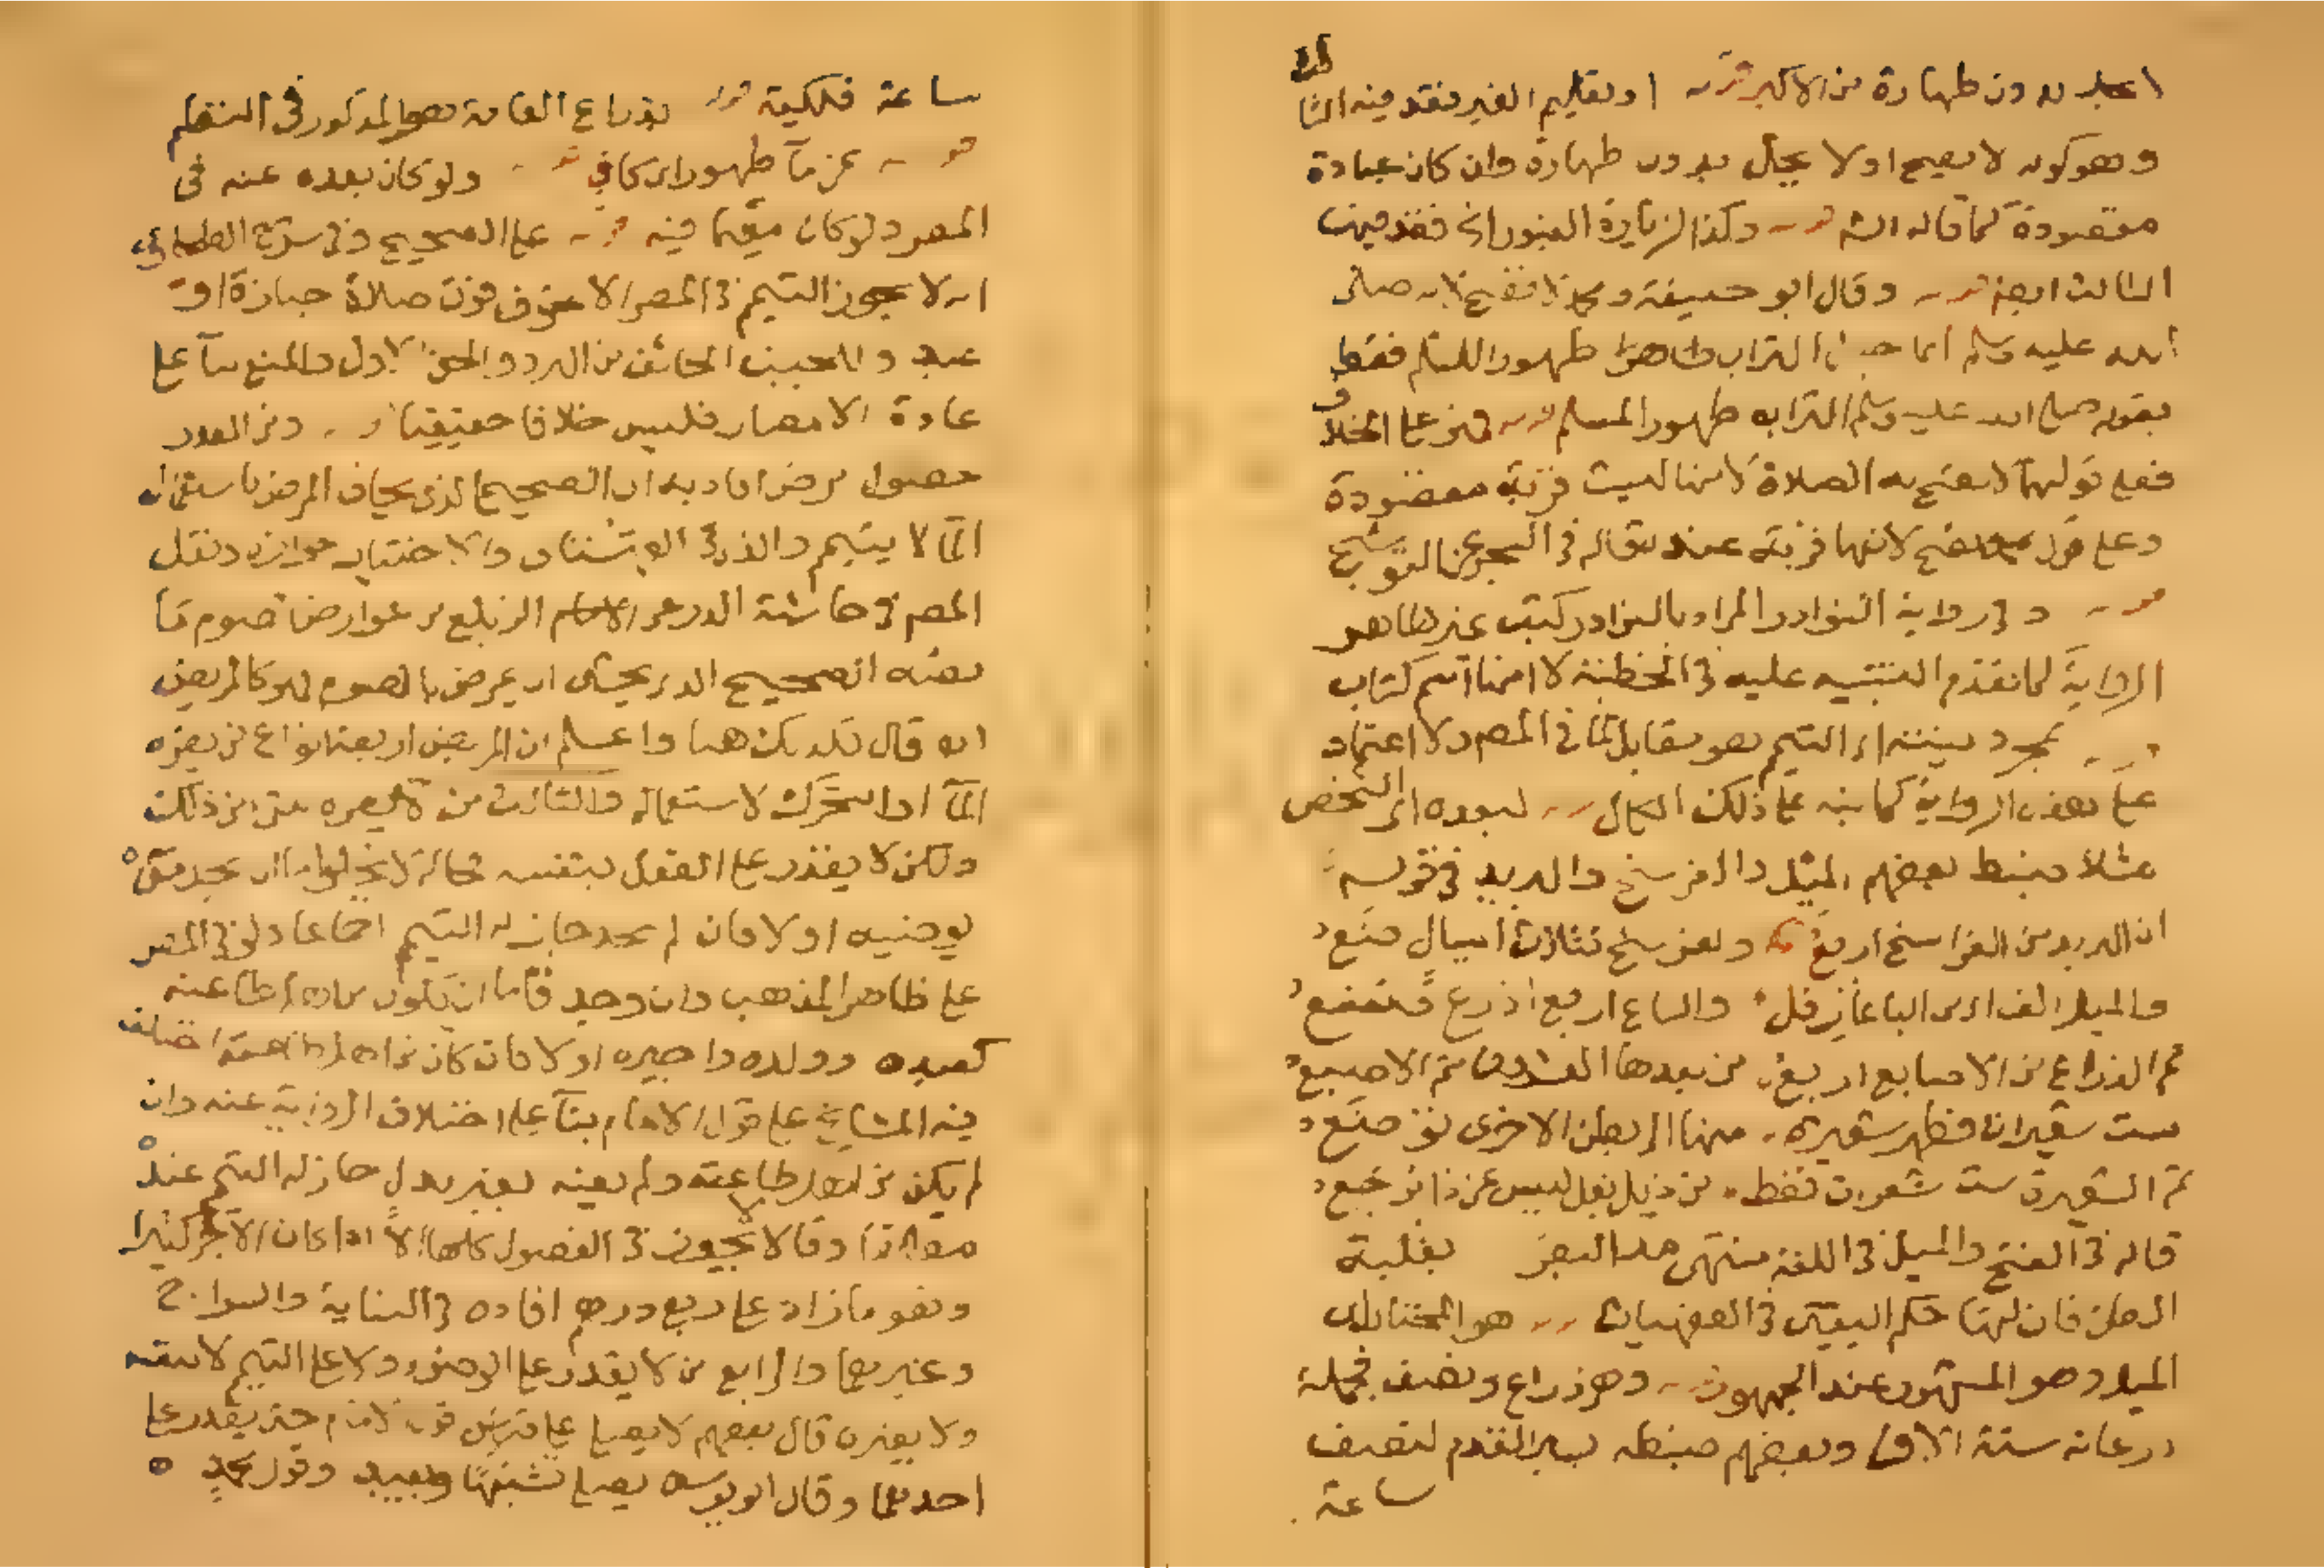 بدون طهارة من الاكبر قوله او تعليم الغير فقد فيه الثا
لث
وهو كونه لا يصح او لا يحل بدون طهارة وان كان عبادة
مقصودة كما قاله الش قوله وكذا لزيارة القبور اى ففقد فيها
الثالث ايضا قوله وقال ابو حنيفة ومحمد لا تفتح لانه صلى
الله عليه وسلم انما جعل التراب طهورا للمسلم فقط
بقوله صلى الله عليه وسلم التراب طهور المسلم قوله فرع على الخلاف
فعلى قولهما لا يفتح به الصلاة لانها ليست قربة مقصودة
وعلى قول تفتح لانها قربة عنده قاله فى البحر عن التوشيح
قوله وفى رواية النوادر المراد بالنوادر كتب غير ظاهر
الرواية كما تقدم التنبيه عليه فى الخطبة لا انها اسم كتاب
قوله بمجرد نيته اى التيمم هو مقابل لما فى المصر ولا اعتماد
على هذه الرواية كما نبه على ذلك الكمال قوله لبعده اى الشخص
مثلا ضبط بعضهم الميل والفرسخ والبريد فى قوله
ان البريد من الفراسخ اربع ولفرسخ فثلاث اميال ضعوا
والميل الف اى من الباعات قل والباع اربع اذرع فتتبعوا
ثم الذراع من الاصابع اربع من بعدها العشرون ثم الاصبع
ست شعيرات فظهر شعيرة منها الى بطن الاخرى توضع
ثم الشعيرة ست شعرات فقط من ذيل بغل ليس عن ذا نرجع
قاله فى الفتح والميل فى اللغة منتهى مد البصر بغلبة
الظن فان لها حكم اليقين فى الفقهيات قوله هو المختار اى
الميل وهو المشهور عند الجمهور قوله وهو ذراع ونصف فجملة
ذرعانه ستة الاف وبعضهم ضبطه بسير القدم لنصف
ساعة
ساعة فلكية قوله بذراع العامة هو المذكور فى النظم
قوله عن ماء طهور اى كاف قوله ولو كان بعده عنه فى
المصر ولو كان مقيما فيه قوله على الصحيح وفى شرح الطحاوى
انه لا يجوز التيمم فى المصر الا لخوف فوت صلاة جنازة او
عيد وللجنب الخائف من البرد والحق الاول والمنع بناء على
عادة الامصار فليس خلافا حقيقيا قوله ومن العذر
حصول مرض افاد به ان الصحيح الذى يخاف المرض باستعمال
الماء لا يتيمم والذى فى القهستانى والاختيار جوازه ونقل
المصر فى حاشية الدرر عن الامام الزيلعى من عوارض الصوم ما
نصه الصحيح الذى يخشى ان يمرض بالصوم فهو كالمريض
انه قال فكذلك هنا واعلم ان المريض اربعة انواع من يضره
الماء او التحرك لاستعماله والثالث من لا يضره شئ من ذلك
ولكن لا يقدر على الفعل بنفسه فحاله لا يخلوا ما ان يجد من
يوضيه او لا فان لم يجد جاز له التيمم اجماعا ولو فى المصر
على ظاهر المذهب وان وجد فاما ان يكون من اهل طاعته
كعبده وولده واجيره او لا فان كان من اهل طاعته اختلف
فيه المشايخ على قول الامام بناء على اختلاف الرواية عنه وان
لم يكن من اهل طاعته ولم يعنه بغير بدل جاز له التيمم عنده
مطلقا وقالا لا يجوز فى الفصول كلها الا اذا كان الاجر كثيرا
وهو ما زاد على ربع درهم افاده فى البناية والسراج
وغيرهما والرابع من لا يقدر على الوضوء ولا على التيمم لا بنفسه
ولا بغيره قال بعضهم لا يصلى على قياس قول الامام حتى يقدر على
احدهما وقال ابو يوسف يصلى تشبها ويعيد وقول محمد